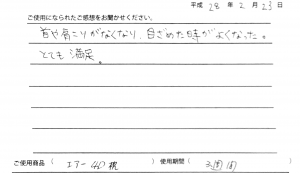 平成 28 年 2 月 23 日
ご使用になられたご感想をお聞かせください。
首や肩こりがなくなり、目ざめた時がよくなった。
とても満足。
ご使用商品（ エアー40枕 ）使用期間（ 3週間 ）